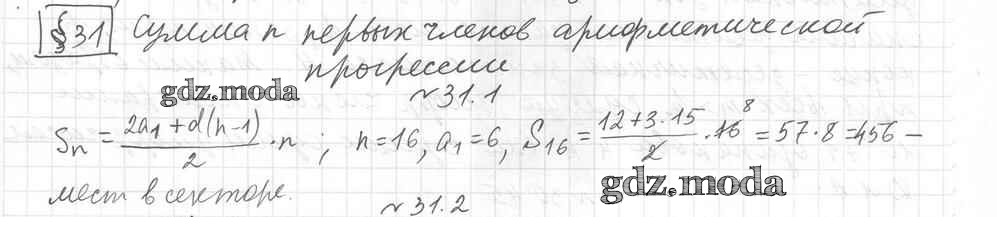 §31 Сумма n первых членов арифметической
прогрессии
gdz.moda
№31.1
Sn = (2a1 + d(n-1))/2 · n ; n=16, a1=6, S16 = (12+3·15)/2 · 16 8 = 57·8 = 456 –
мест в секторе.
gdz.moda
№31.2